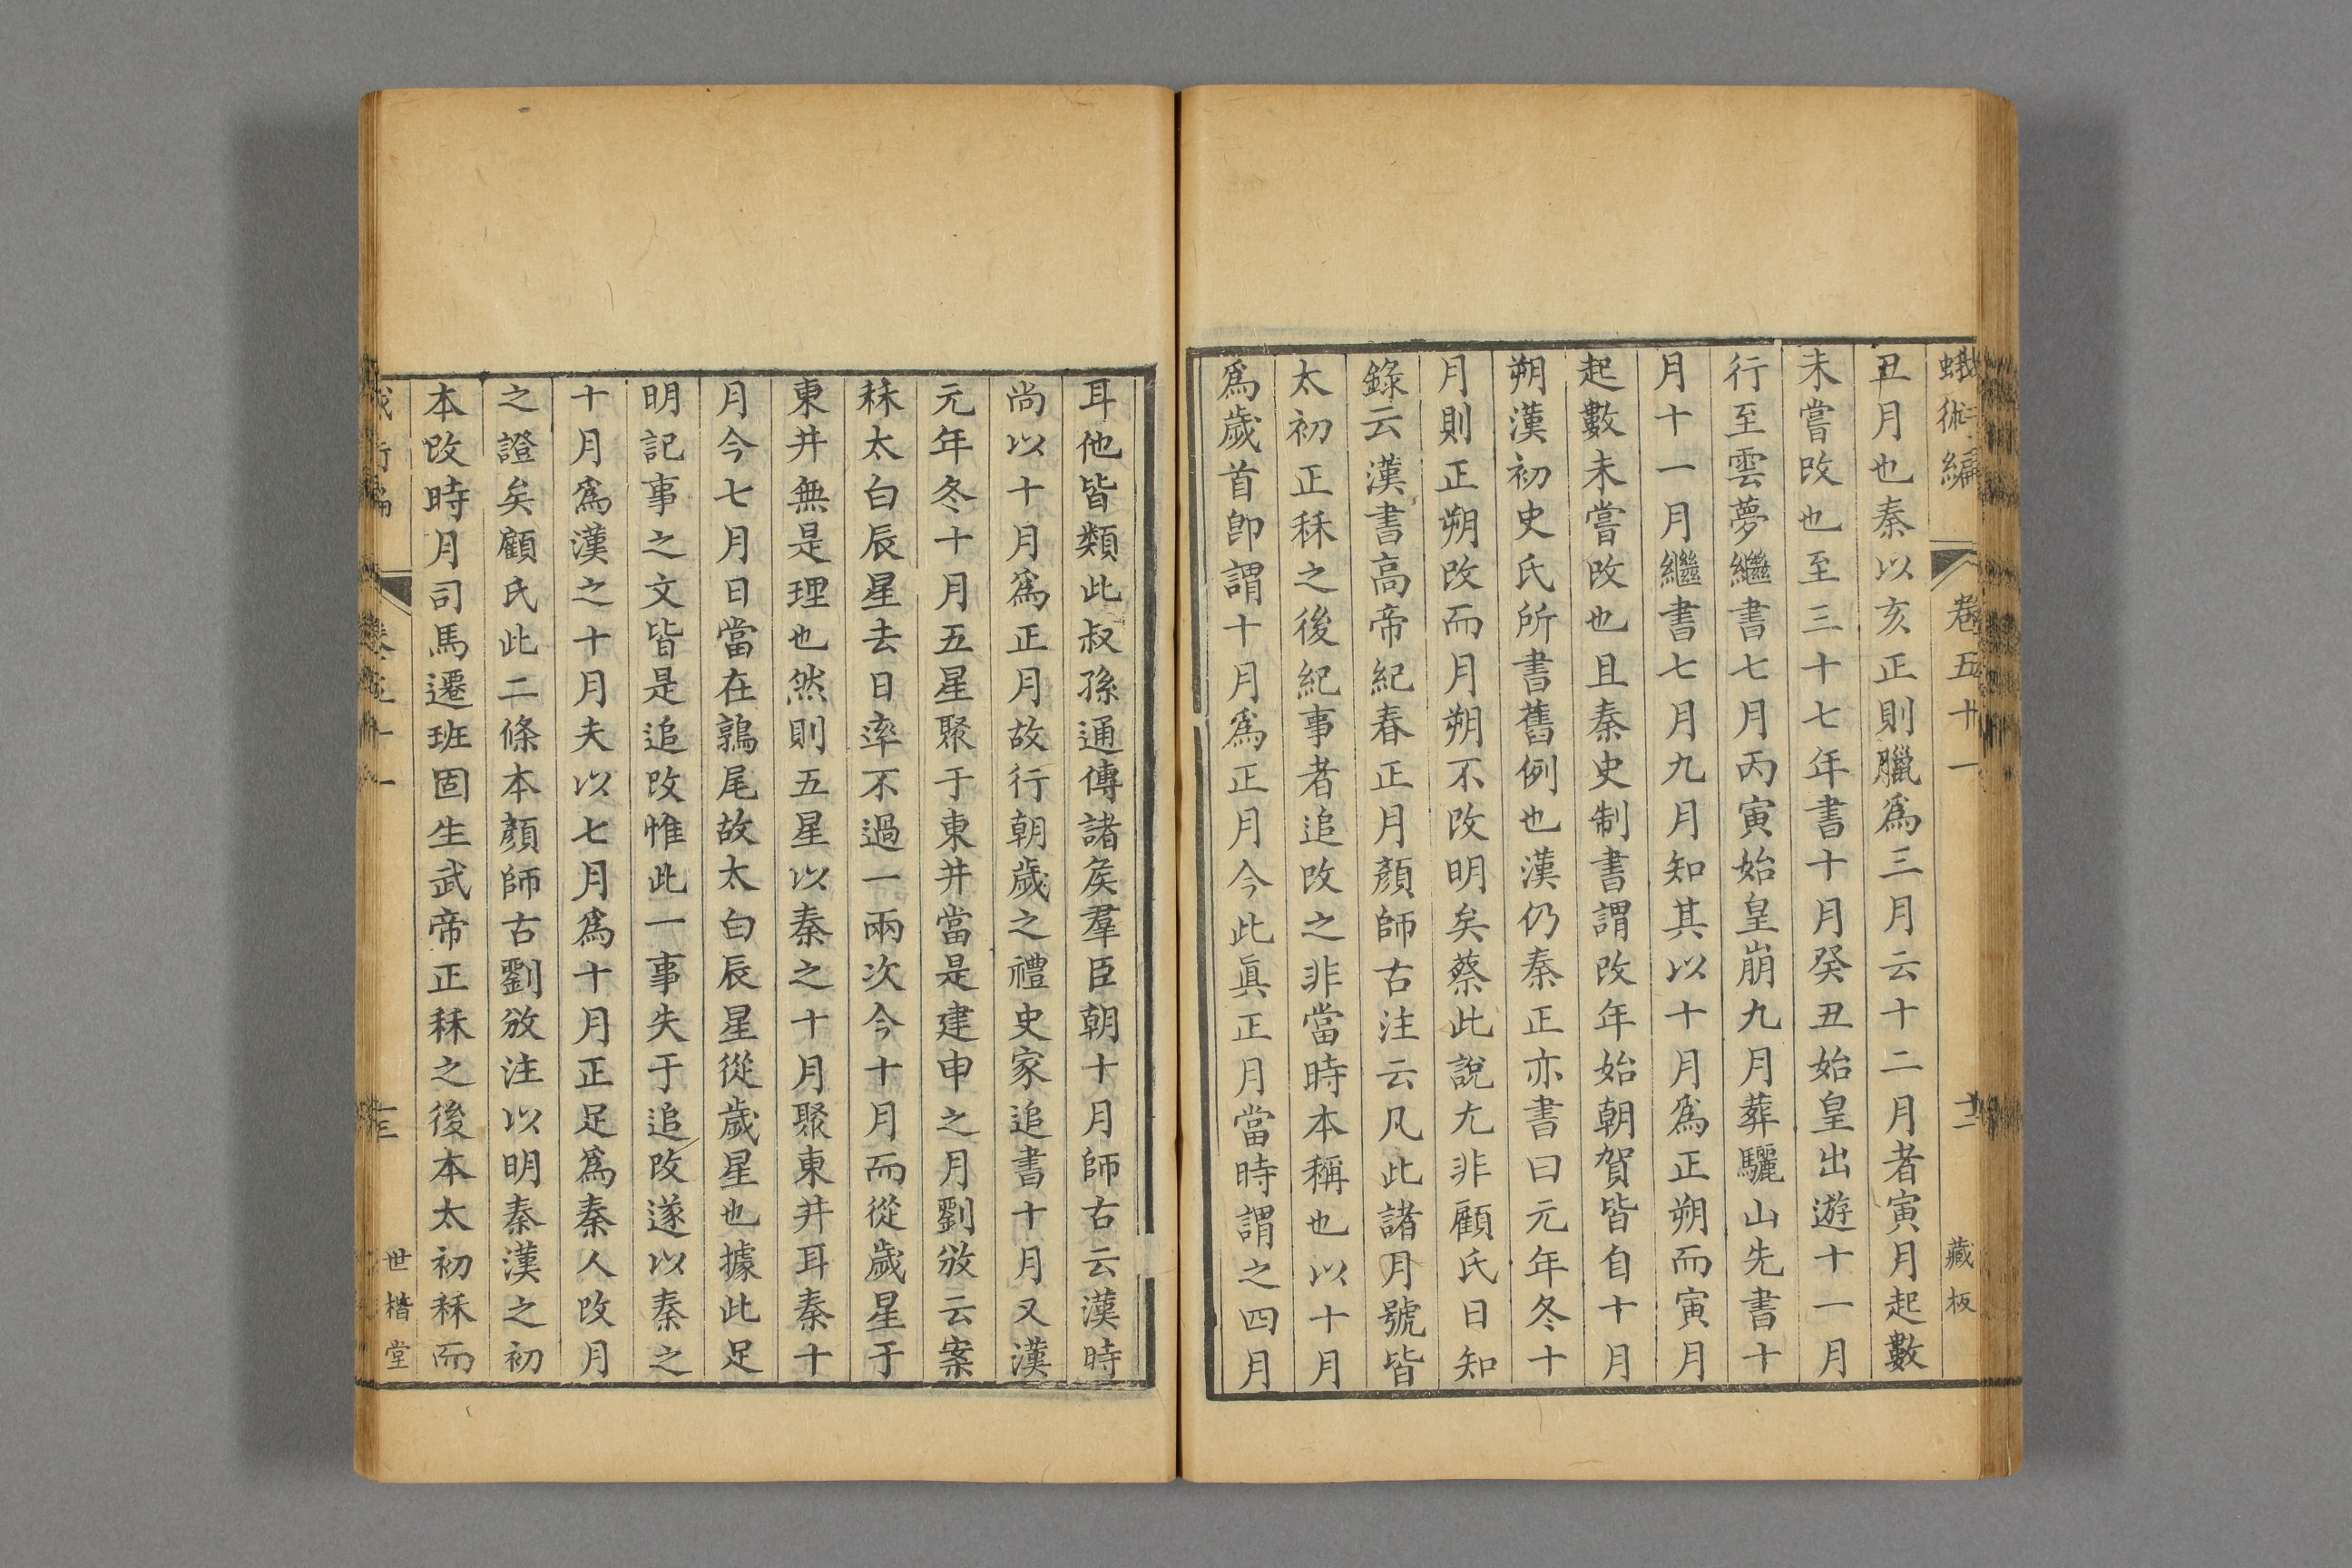 蛾術編 卷五十一 十二 藏板
丑月也秦以亥正則臘爲三月云十二月者寅月起數
未嘗改也至三十七年書十月癸丑始皇出遊十一月
行至雲夢繼書七月丙寅始皇崩九月葬驪山先書十
月十一月繼書七月九月知其以十月爲正朔而寅月
起數未嘗改也且秦史制書謂改年始朝賀皆自十月
朔漢初史氏所書舊例也漢仍秦正亦書曰元年冬十
月則正朔改而月朔不改明矣蔡此說尤非顧氏日知
錄云漢書高帝紀春正月顏師古注云凡此諸月號皆
太初正秝之後紀事者追改之非當時本稱也以十月
爲歲首卽謂十月爲正月今此眞正月當時謂之四月
耳他皆類此叔孫通傳諸矦羣臣朝十月師古云漢時
尚以十月爲正月故行朝歲之禮史家追書十月又漢
元年冬十月五星聚于東井當是建申之月劉攽云案
秝太白辰星去日率不過一兩次今十月而從歲星于
東井無是理也然則五星以秦之十月聚東井耳秦十
月今七月日當在鶉尾故太白辰星從歲星也據此足
明記事之文皆是追改惟此一事失于追改遂以秦之
十月爲漢之十月夫以七月爲十月正足爲秦人改月
之證矣顧氏此二條本顏師古劉攽注以明秦漢之初
本改時月司馬遷班固生武帝正秝之後本太初秝而
十三 世楷堂